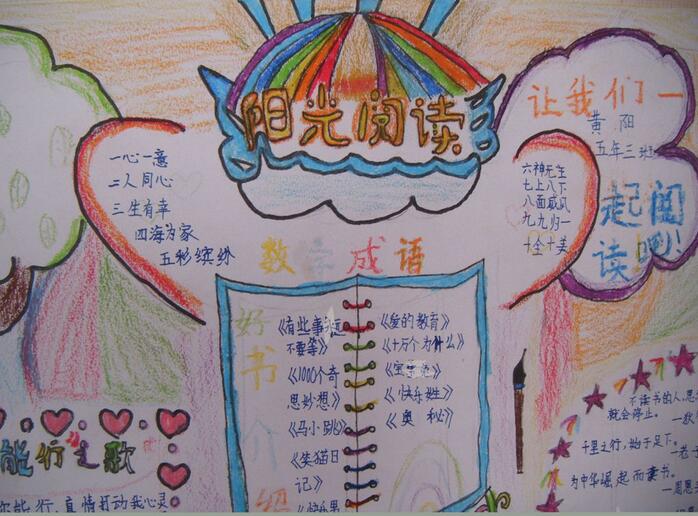 阳光阅读
让我们一
黄阳
五年二班
起阅
读吧!
一心一意
二人同心
三生有幸
四海为家
五彩缤纷
六神无主
七上八下
八面威风
九九归一
十全十美
数字成语
好书介绍
《有些事
不要等》
《1000个奇
思妙想》
《马小跳》
《笑猫日
记》
《爱的教育》
《十万个为什么》
《快乐姓》
《奥秘》
能行之歌
能行,真情打动我心灵
不读书的人,思
就会停止。
千里之行,始于足下。
一老子
为中华崛起而读书。
一周恩